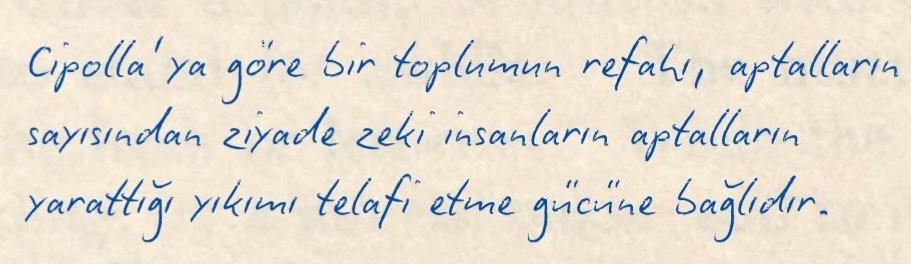 Cipolla'ya göre bir toplumun refahı, aptalların
sayısından ziyade zeki insanların aptalların
yarattığı yıkımı telafi etme gücüne bağlıdır.